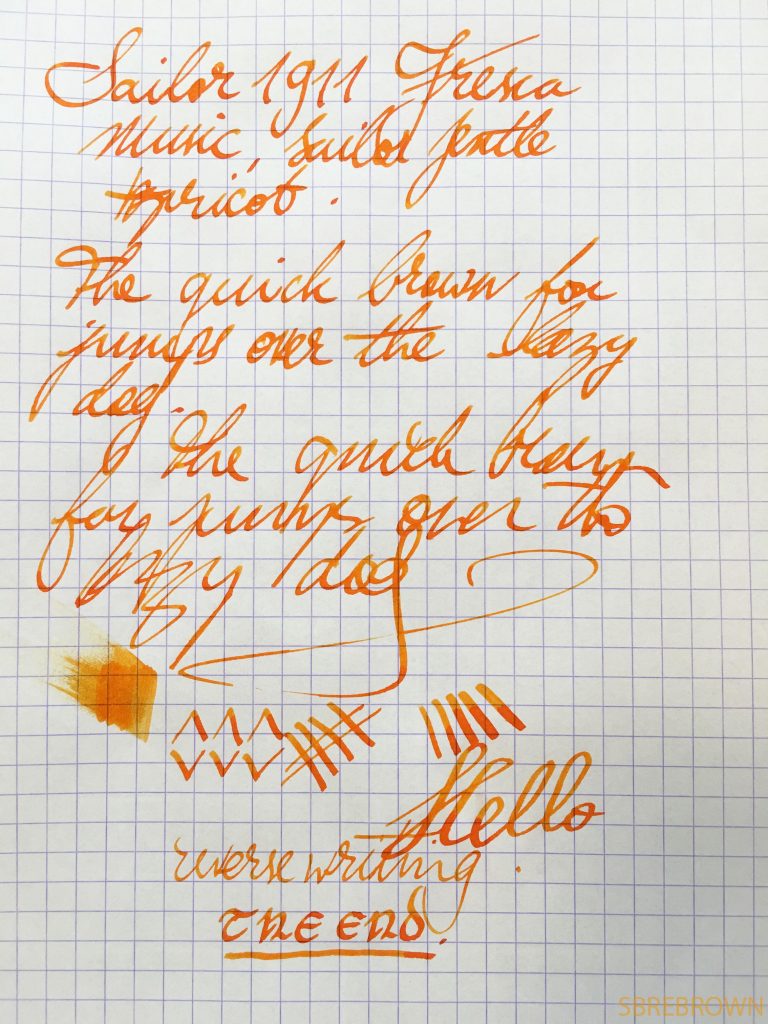 Sailor 1911 Fresca
music, Sailor Jentle
Apricot.
The quick brown fox
jumps over the lazy
dog.
The quick brown
fox jumps over the
lazy dog
Hello
reverse writing.
THE END.
SBREBROWN